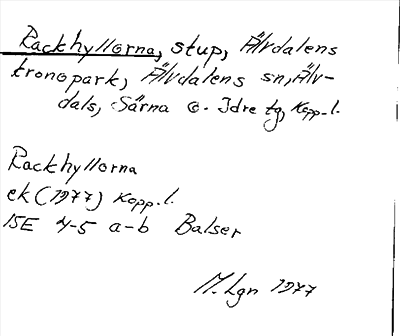 Rackhyllorna, stup, Älvdalens
kronopark, Älvdalens sn, Älv-
dals, Särna o. Idre tg, Kopp. l.
Rackhyllorna
ek (1977) Kopp. l.
15E 4-5 a-b Balser
M. Lgn 1977